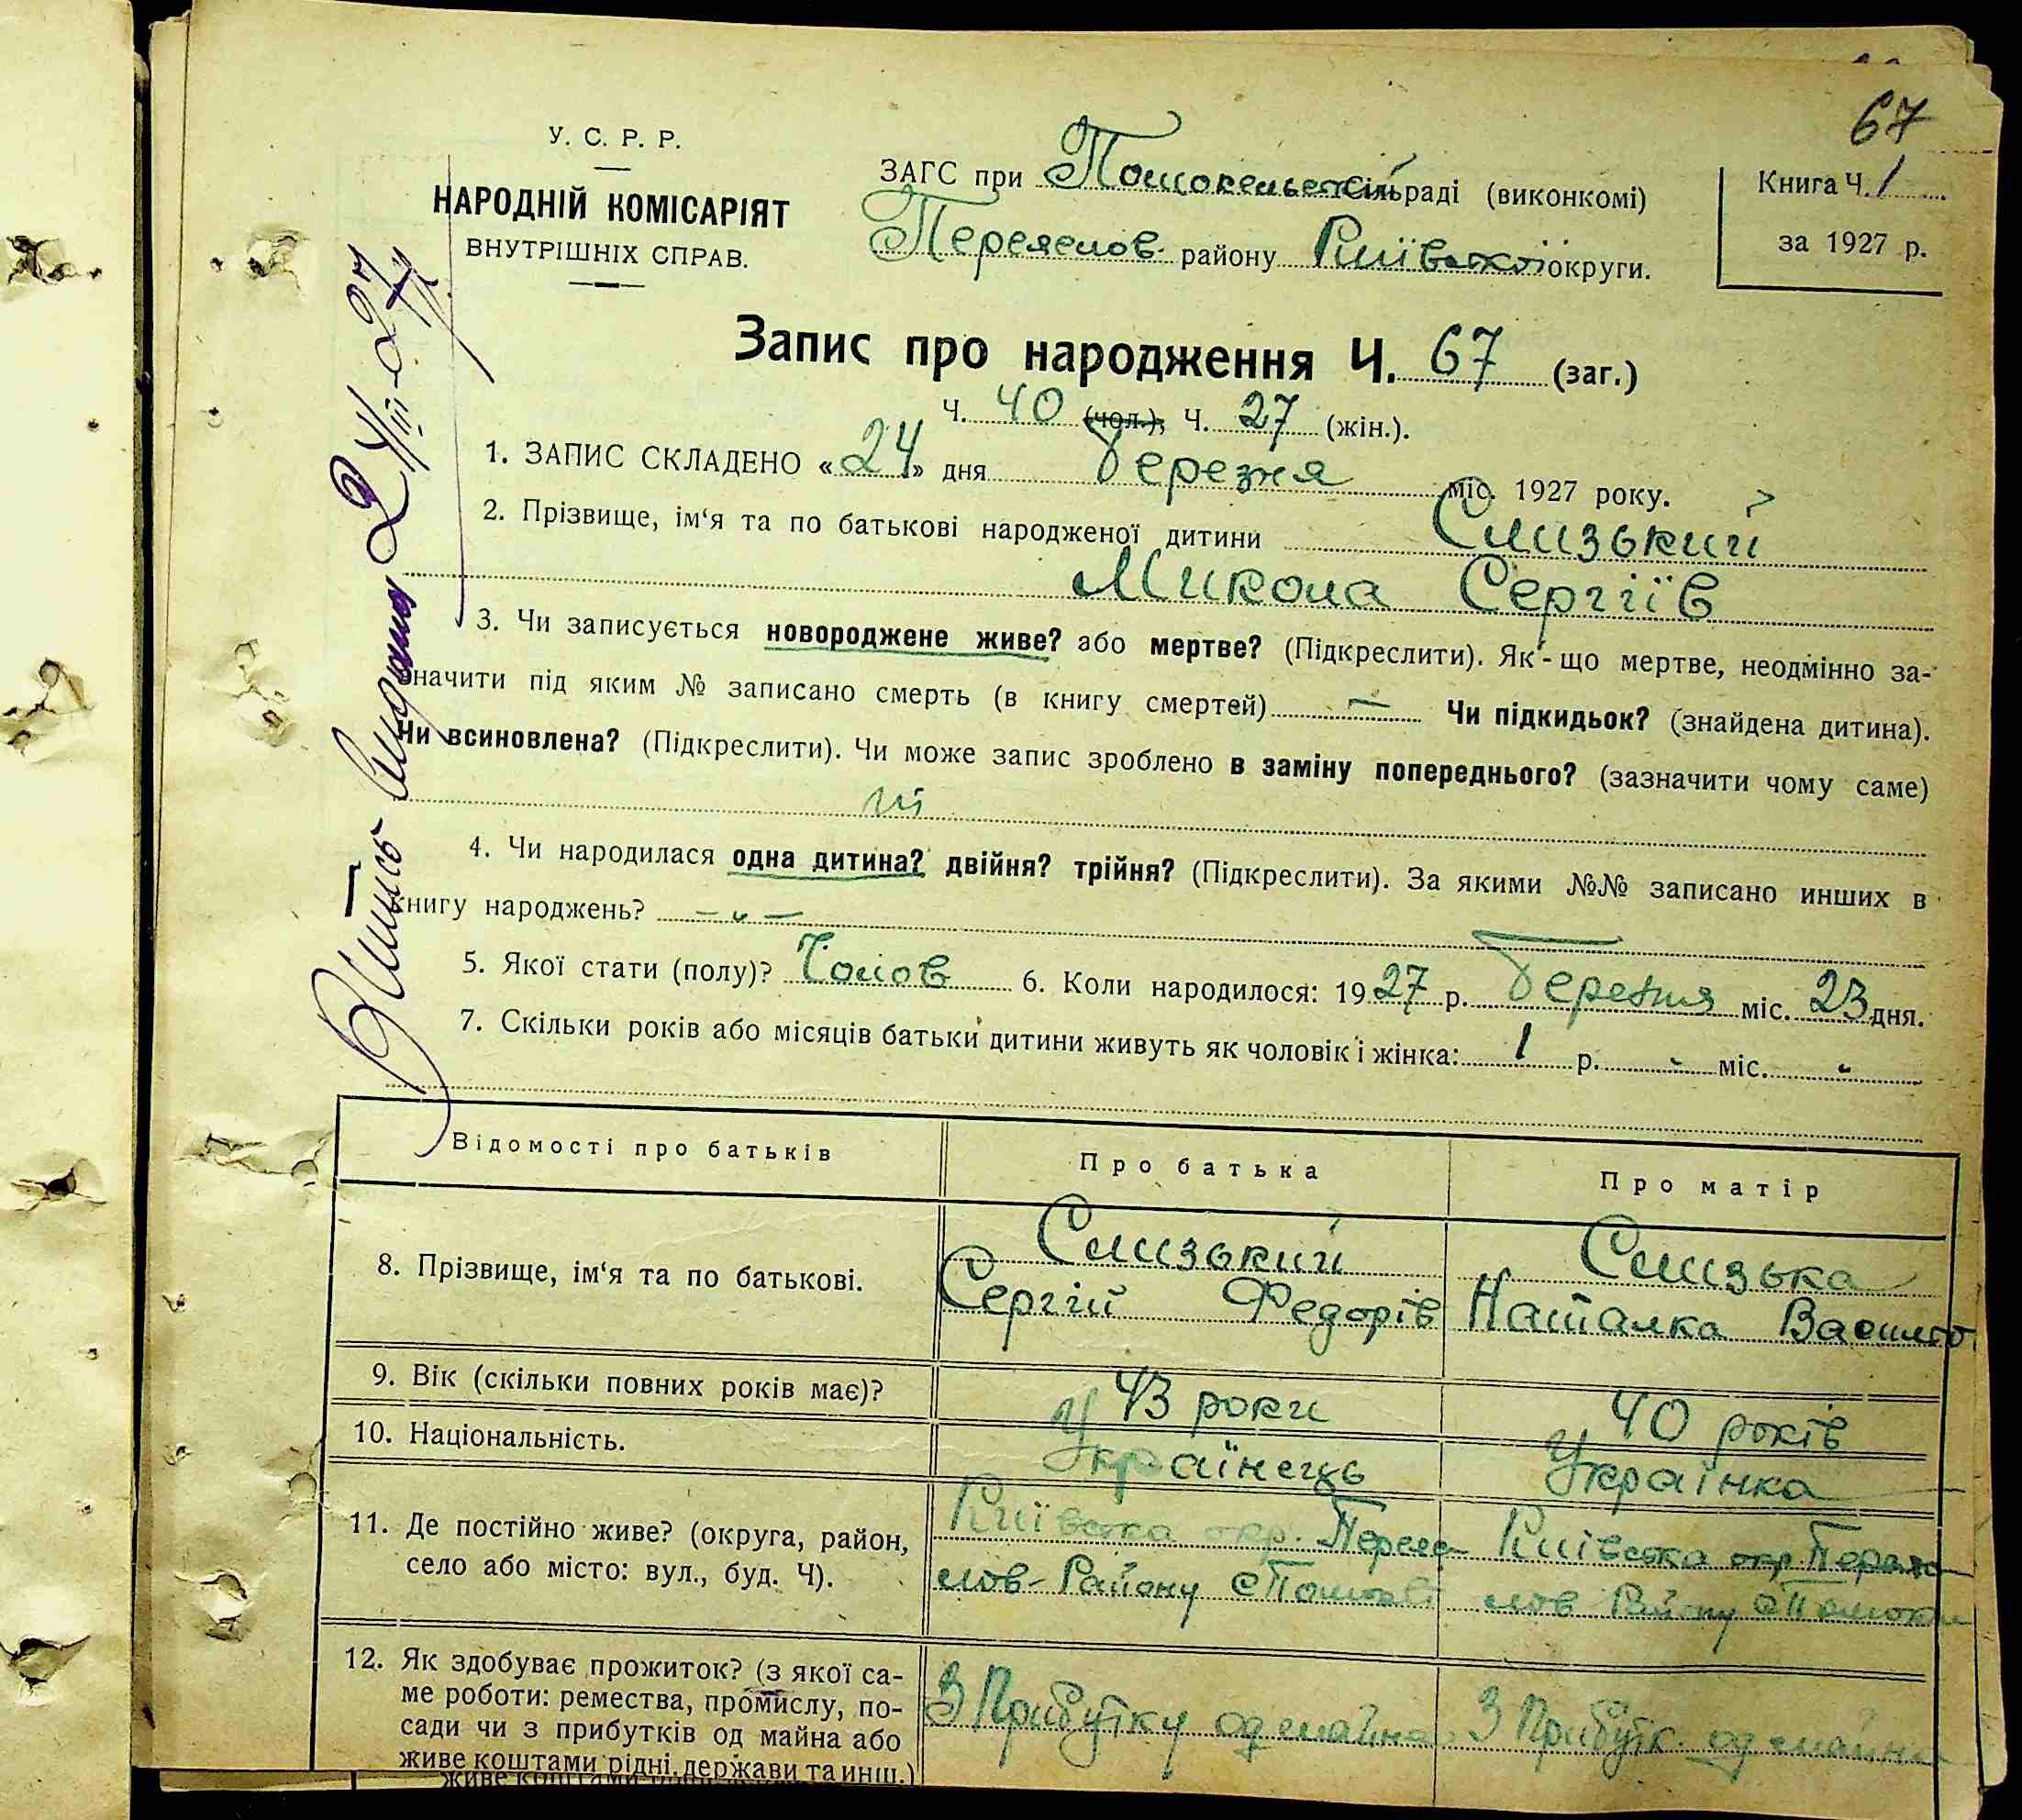 67
У. С. Р. Р.
НАРОДНІЙ КОМІСАРІЯТ
ВНУТРІШНІХ СПРАВ.
ЗАГС при сільраді (виконкомі)
Переяслов району Київської округи.
Книга Ч. 1
за 1927 р.
Запис про народження Ч. 67 (заг.)
Ч. 40 (чол.), Ч. 27 (жін.).
1. ЗАПИС СКЛАДЕНО «24» дня березня міс. 1927 року.
2. Прізвище, ім‘я та по батькові народженої дитини Слизький
Микола Сергіїв
3. Чи записується новороджене живе? або мертве? (Підкреслити). Як - що мертве, неодмінно за-
значити під яким № записано смерть (в книгу смертей) — Чи підкидьок? (знайдена дитина).
Чи всиновлена? (Підкреслити). Чи може запис зроблено в заміну попереднього? (зазначити чому саме)
ні
4. Чи народилася одна дитина? двійня? трійня? (Підкреслити). За якими №№ записано инших в
книгу народжень? – „ –
5. Якої стати (полу)? Чолов 6. Коли народилося: 1927 р. березня міс. 23 дня.
7. Скільки років або місяців батьки дитини живуть як чоловік і жінка: 1 р. - міс. -
Витяг видано 24/III-27
Відомості про батьків Про батька Про матір
8. Прізвище, ім‘я та по батькові. Слизький Сергій Федорів Слизька Наталка
9. Вік (скільки повних років має)? 43 роки 40 років
10. Національність. Українець Українка
11. Де постійно живе? (округа, район, Київська окр. Перея Київська окр. Перея
село або місто: вул., буд. Ч). слов-Району с слов Району с
12. Як здобуває прожиток? (з якої са-
ме роботи: ремества, промислу, по- З Прибутку од майна З Прибутк. од майна
сади чи з прибутків од майна або
живе коштами рідні, держави та инш.)